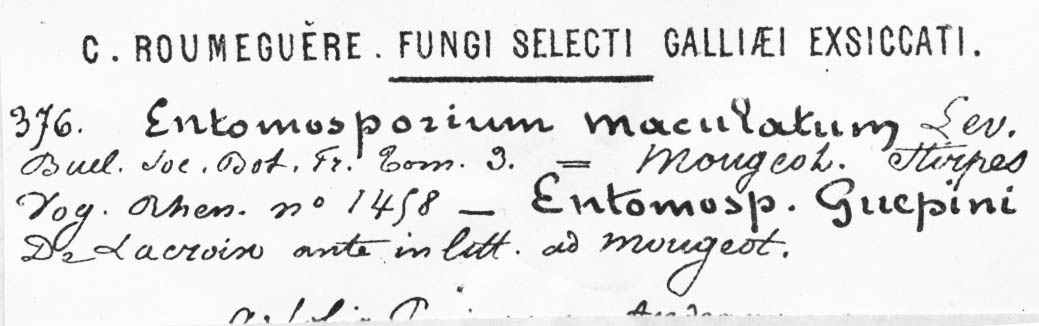 C. ROUMEGUĔRE. FUNGI SELECTI GALLIÆI EXSICCATI.
376. Entomosporium maculatum Lev.
Buel. Soc. Bot. Fr. Tom. 3. = Mougeot. Stirpes
Vog. Rhen. nº 1458 — Entomosp. Guepini
Dr Lacroix ante in litt. ad Mougeot.